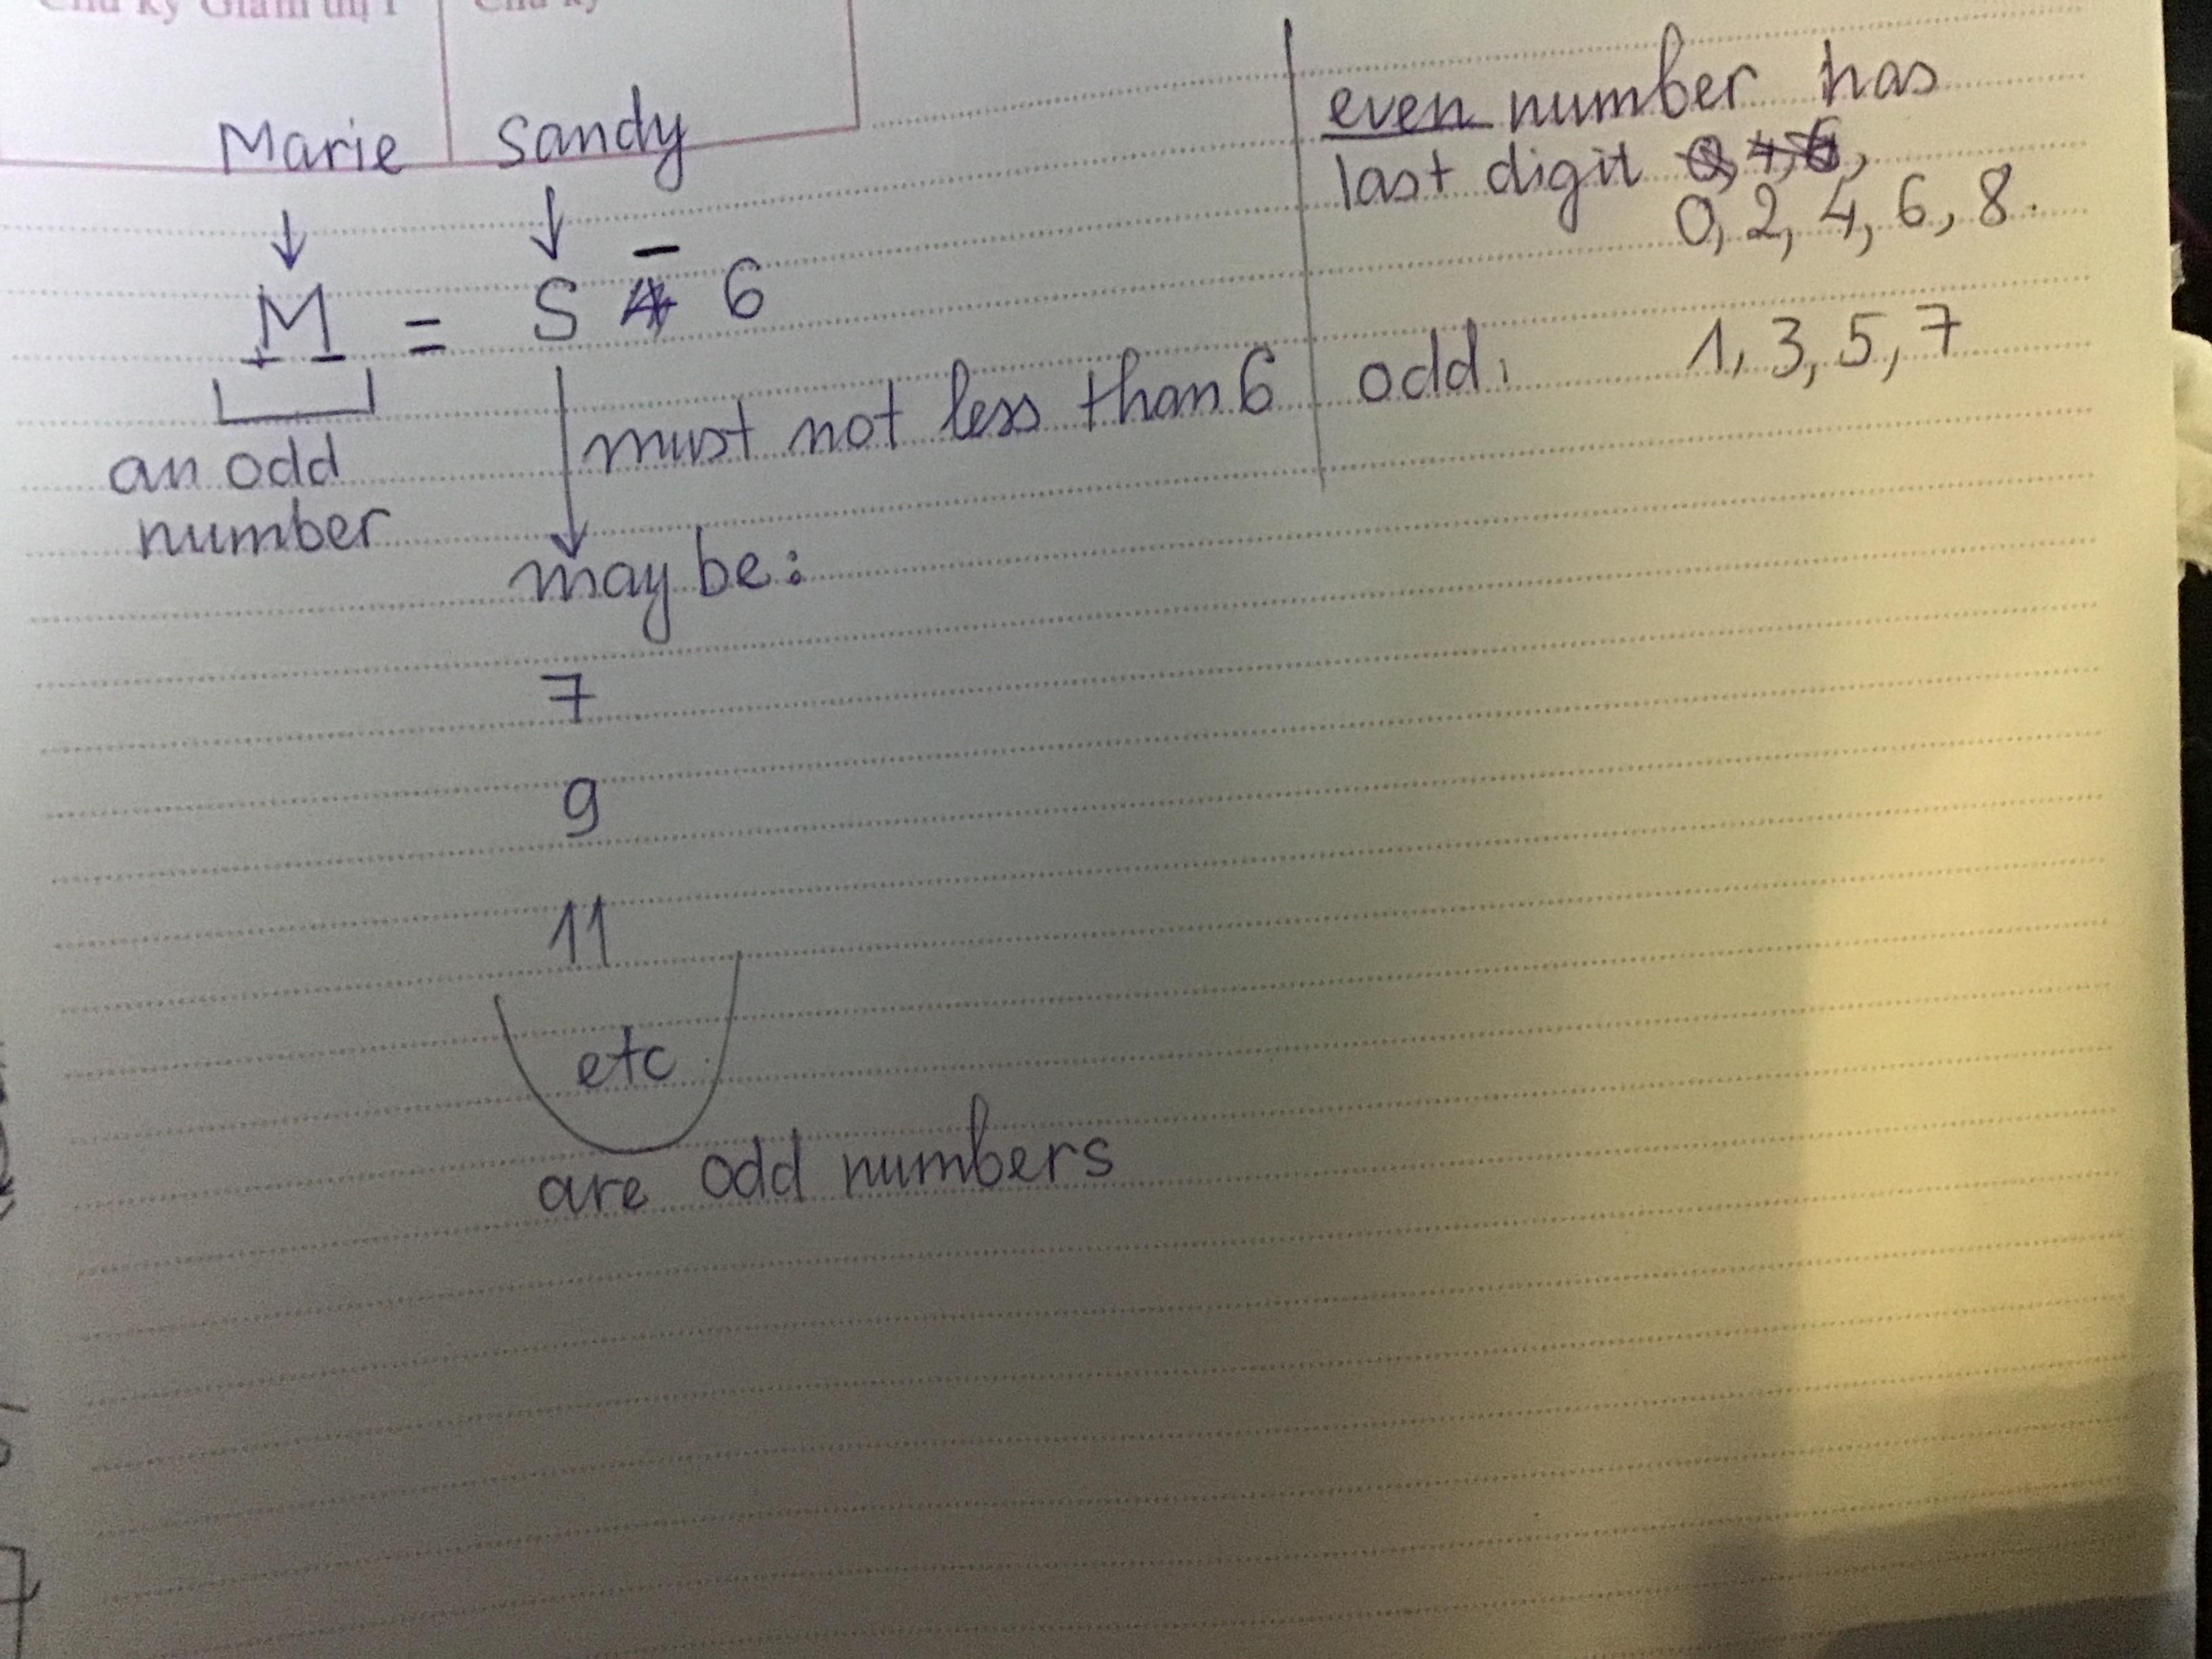 Marie Sandy
M = S - 6
an odd
number
must not less than 6
may be:
7
9
11
etc
are odd numbers
even number has
last digit
0, 2, 4, 6, 8.
odd: 1, 3, 5, 7